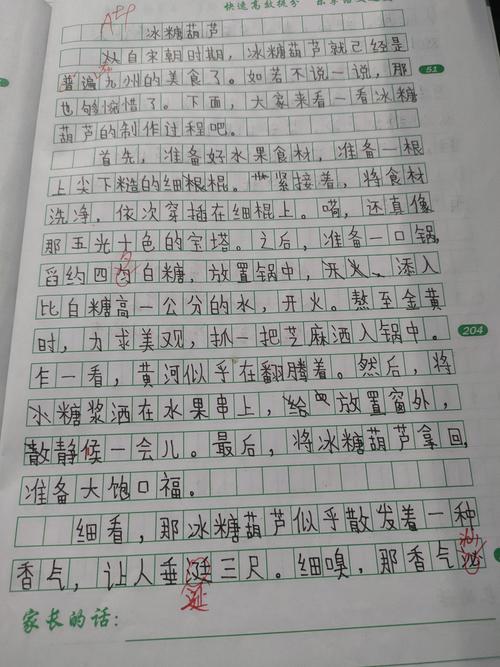 快速高效提分
A+
冰糖葫芦
从自宋朝时期，冰糖葫芦就已经是
普遍九州的美食了。如若不说一说，那
51
也够惋惜了。下面，大家来看一看冰糖
葫芦的制作过程吧。
首先，准备好水果食材，准备一根
上尖下粗的细棍。紧接着，将食材
洗净，依次穿插在细棍上。嗬，还真像
那五光十色的宝塔。之后，准备一口锅，
舀约四勺白糖，放置锅中，开火、添入
比白糖高一公分的水，开火。熬至金黄
时，为求美观，抓一把芝麻洒入锅中。
204
乍一看，黄河似乎在翻腾着。然后，将
糖浆洒在水果串上，放置窗外，
静候一会儿。最后，将冰糖葫芦拿回，
准备大饱口福。
细看，那冰糖葫芦似乎散发着一种
香气，让人垂涎三尺。细嗅，那香气
家长的话：